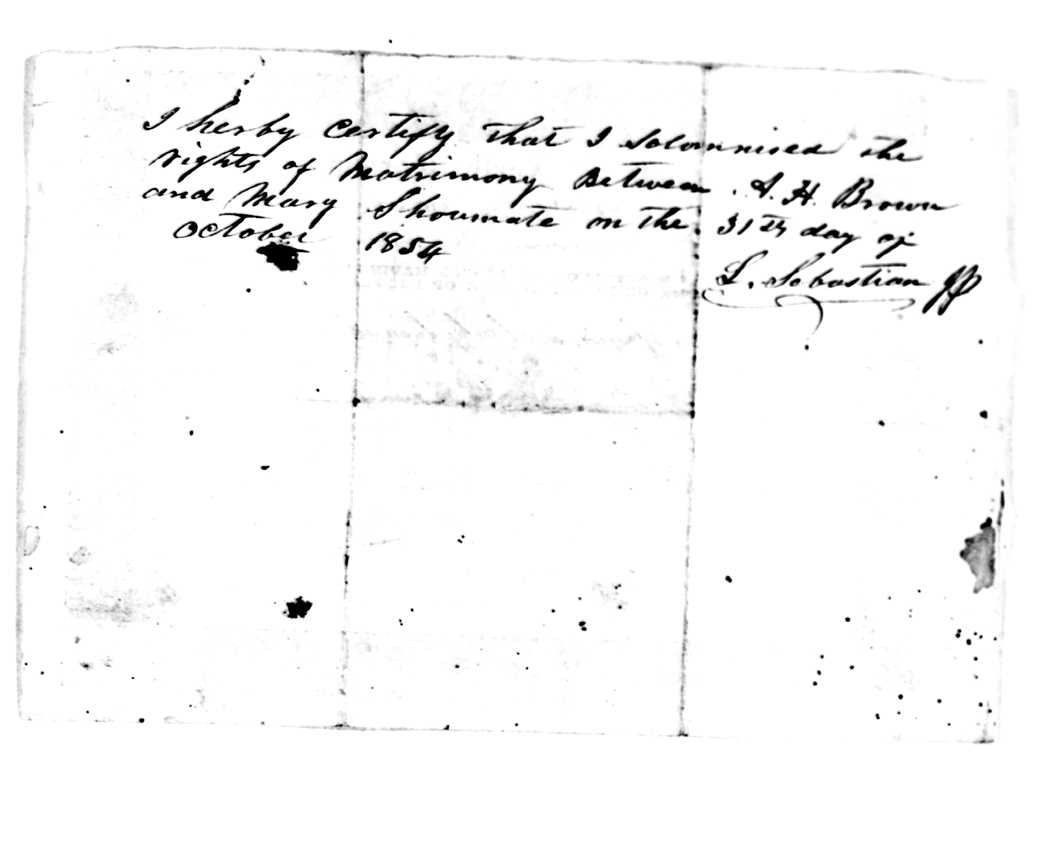 I herby certify that I Solomnised the
rights of Matrimony Between A. H. Brown
and Mary Shoumate on the 31th day of
October 1854
L. Sebastian JP